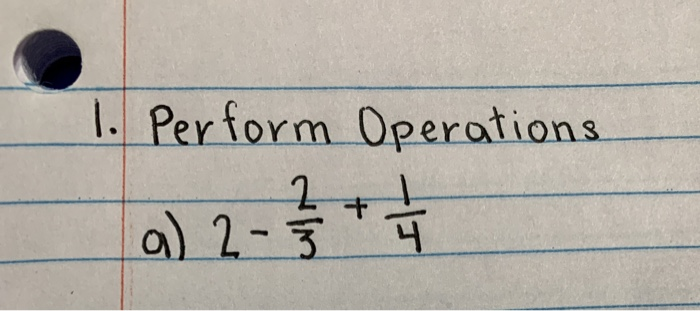 1. Perform Operations
a) 2 - 2/3 + 1/4